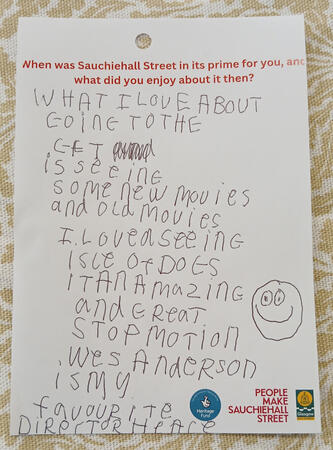 When was Sauchiehall Street in its prime for you, and
what did you enjoy about it then?
WHAT I LOVE ABOUT
GOING TO THE
GFT
is seeing
some new movies
and old movies
I. Loved seeing
ISLE OF DOGS
IT AN Amazing
and GREAT
STOP MOTION
. WES ANDERSON
IS MY
favourite
DIRECTOR HE ARE
Heritage
Fund
PEOPLE
MAKE
SAUCHIEHALL
STREET
Glasgow